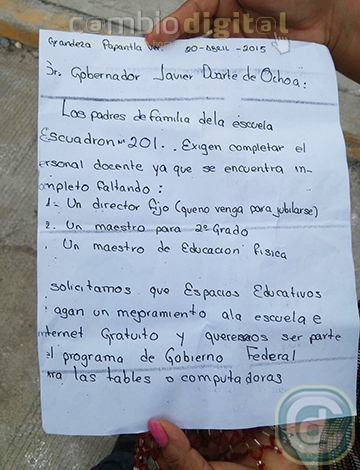 cambiodigital
Grandeza Papantla Ver. 20-Abril-2015
Sr. Gobernador Javier Duarte de Ochoa:
Los padres de familia dela escuela
Escuadron Nº 201.. Exigen completar el
ersonal docente ya que se encuentra in-
ompleto faltando:
1- Un director fijo (queno venga para jubilarse)
2. Un maestro para 2º Grado
. Un maestro de Educacion Fisica
solicitamos que Espacios Educativos
agan un mejoramiento ala escuela e
nternet Gratuito y queremos ser parte
el programa de Gobierno Federal
ara las tables o computadoras